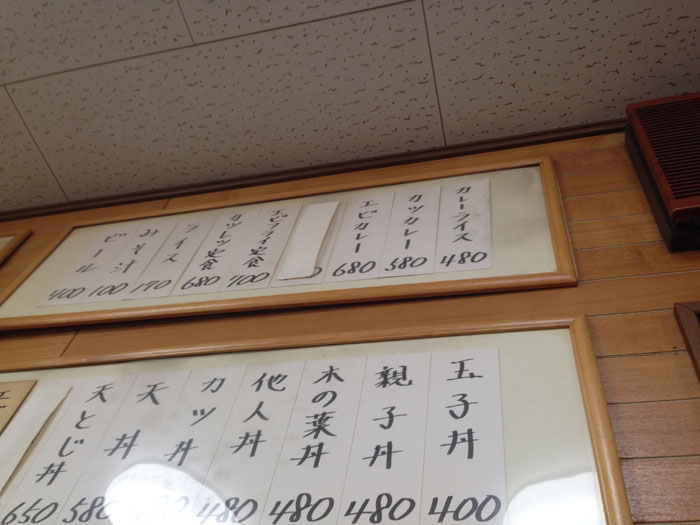 カレーライス 480
カツカレー 580
エビカレー 680
エビフライ定食 700
カツレツ定食 680
ライス 170
みそ汁 100
ビール 400
玉子丼 400
親子丼 480
木の葉丼 480
他人丼 480
カツ丼
天丼 580
天とじ丼 650